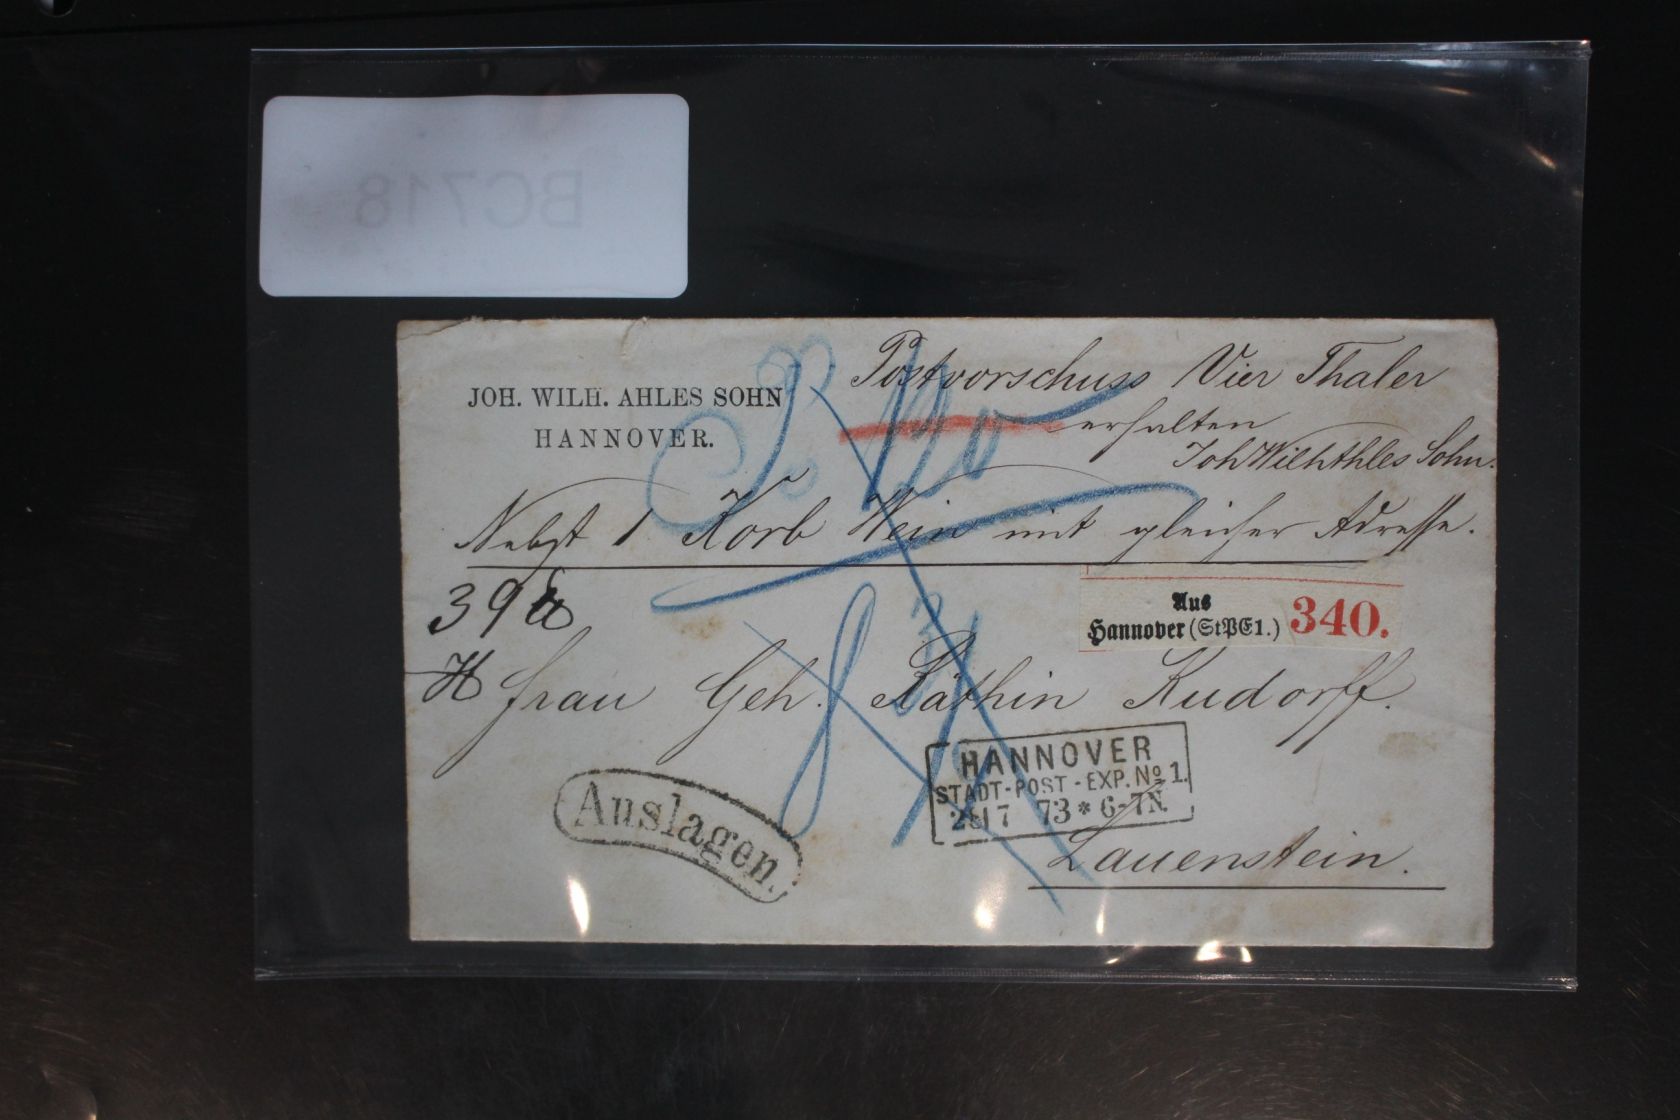 BC718
JOH. WILH. AHLES SOHN
HANNOVER.
Postvorschuss Vier Thaler
erhalten
Joh Wilh Ahles Sohn.
Nebst 1 Korb Wein mit gleicher Adresse.
39
Aus
Hannover (StPE1.) 340.
Frau Geh. Räthin Rudorff.
HANNOVER
STADT-POST-EXP. No 1.
7 73 * 6-7N.
Auslagen.
Lauenstein.